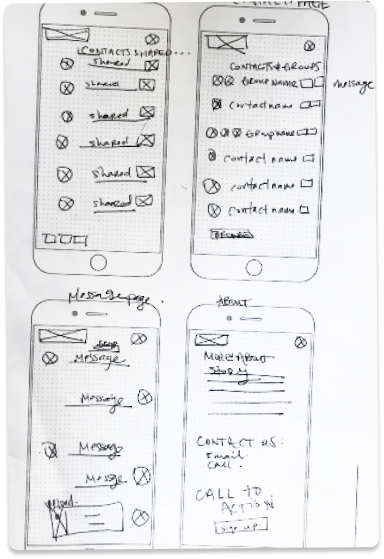 CONTACTS SHARED...
shared
shared
shared
shared
shared
shared
CONTACT PAGE
CONTACTS & GROUPS
GROUP NAME
message
Contact name
Group name
contact name
contact name
contact name
Message page.
Message
Message
Message
Messge
ABOUT
MORE ABOUT
STORY
CONTACT US:
Email
CALL.
CALL TO
ACTION
Sign up